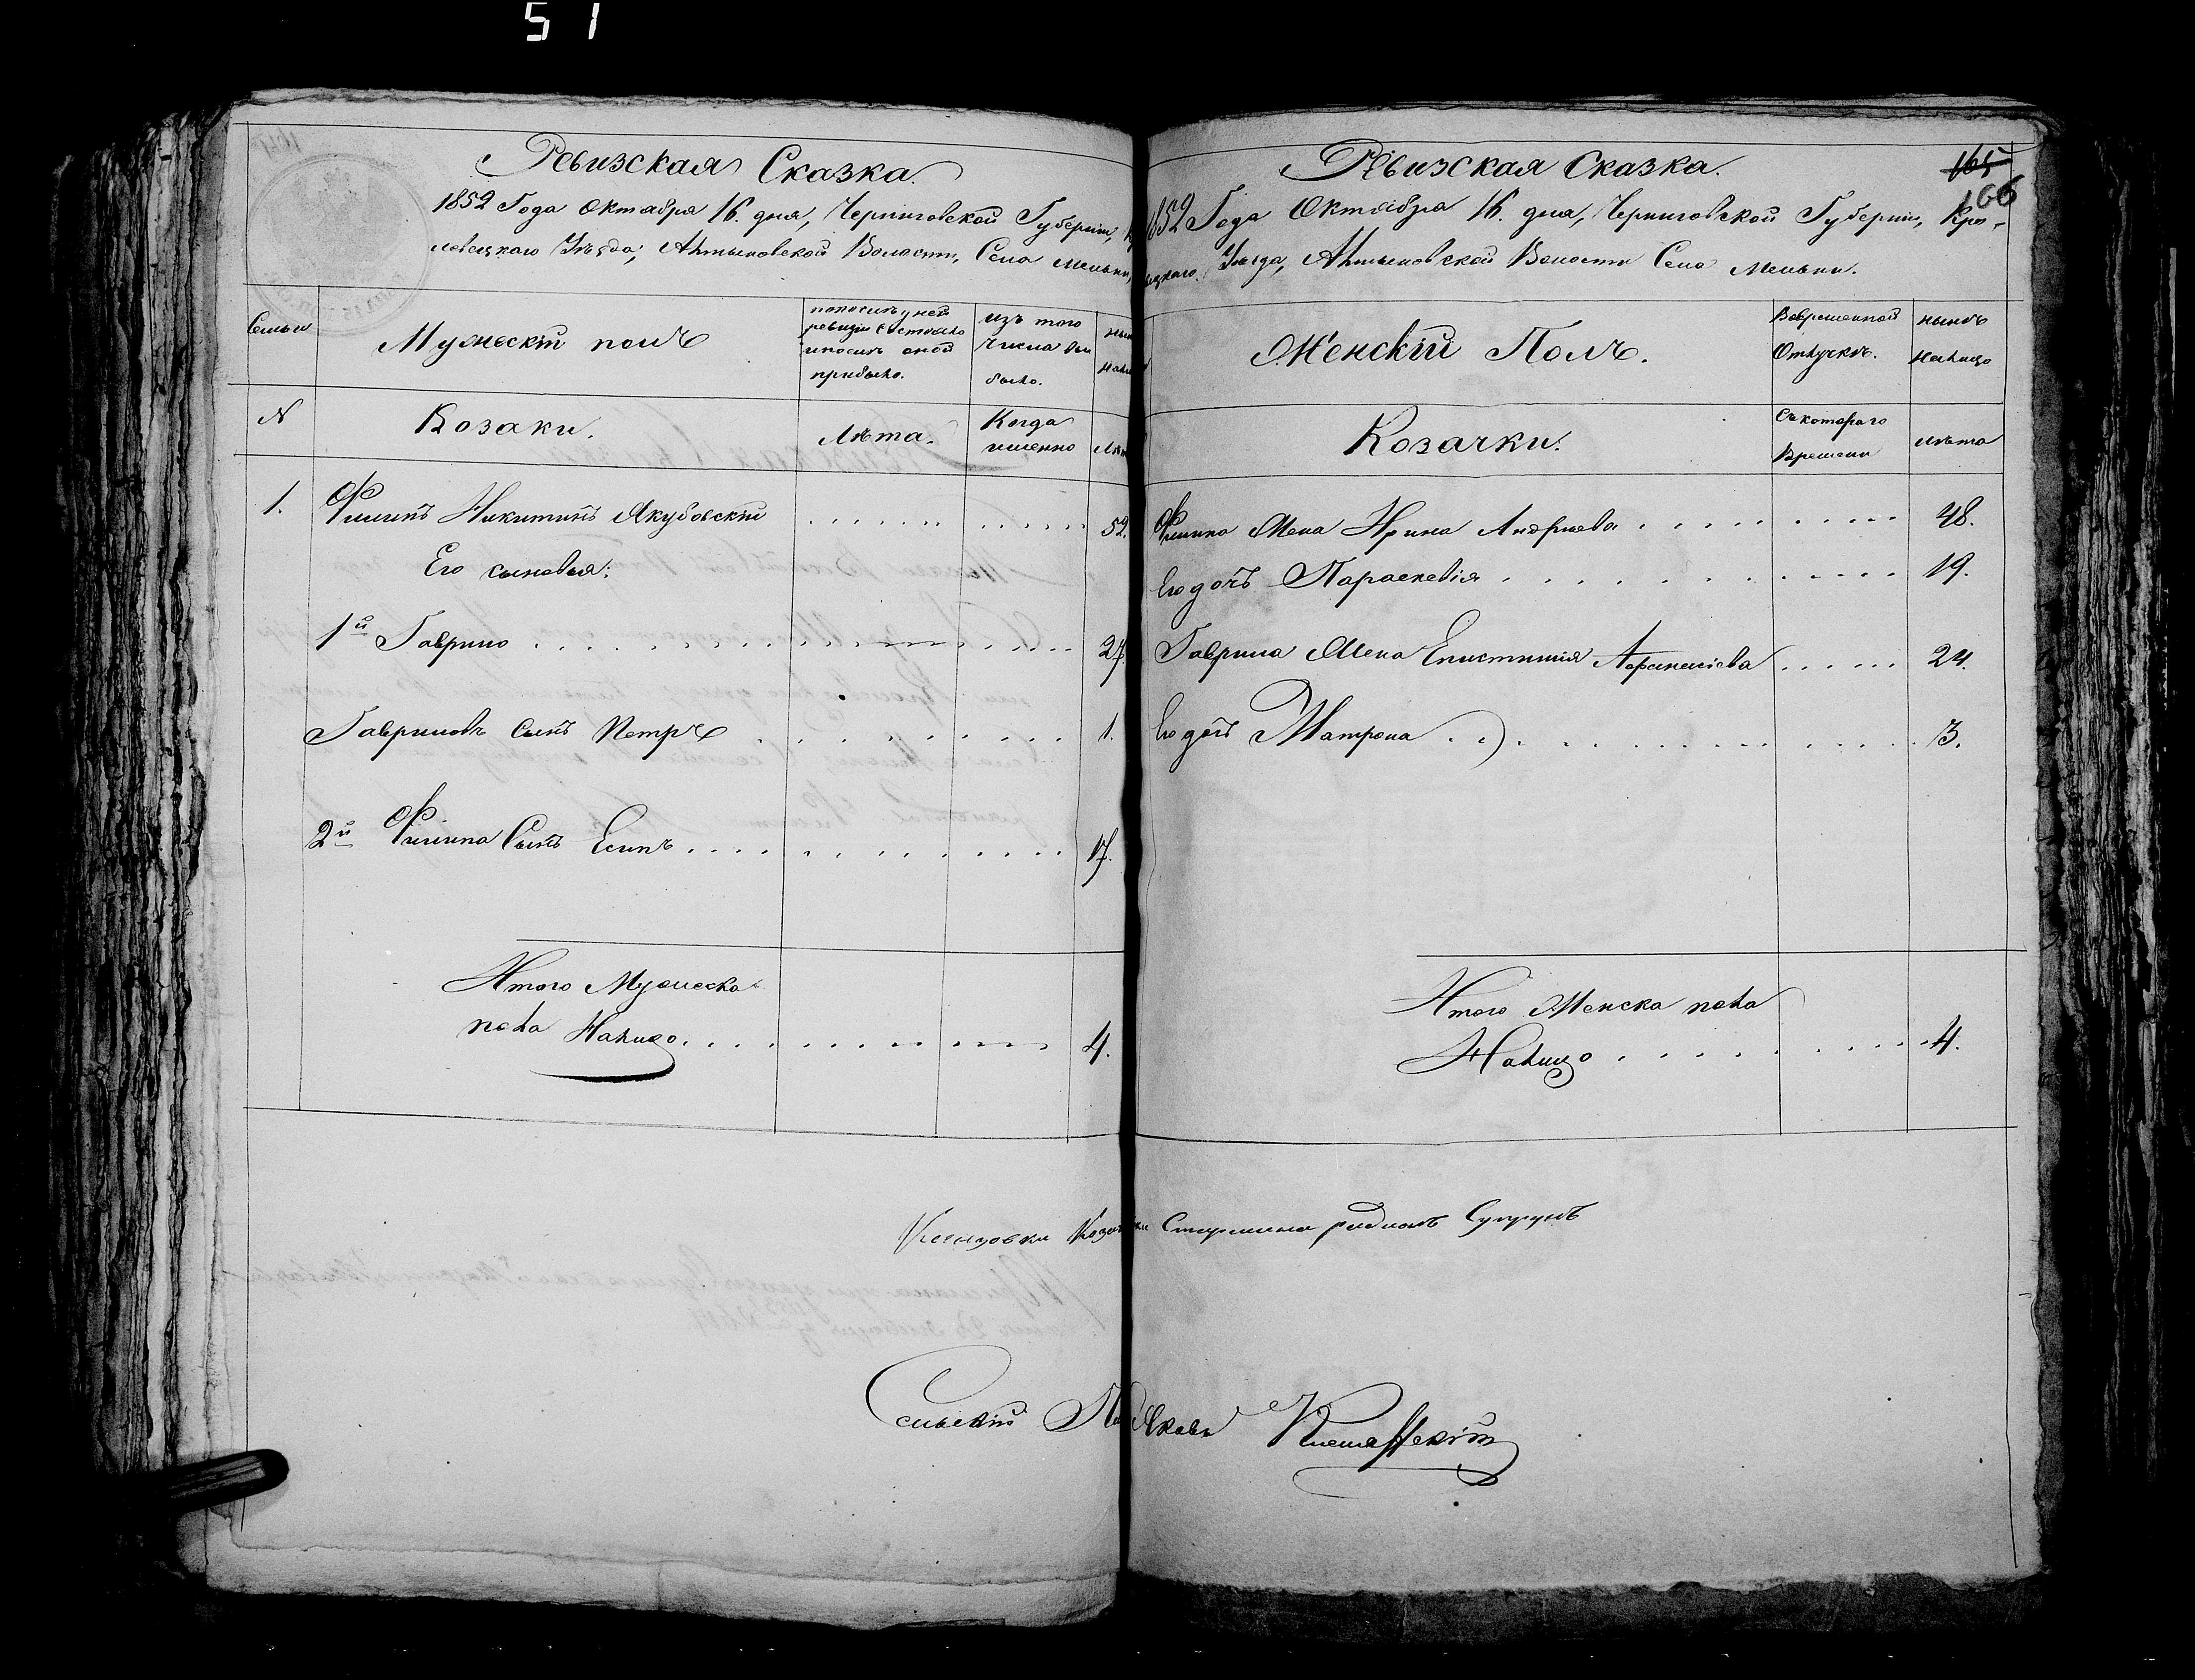 51
Ревизская Сказка.
1852 Года Октября 16. дня, Черниговской Губернiи,
левецкаго Уѣзда, Алтыновской Волости, Села Меньки,
Семьи
Мужескiй полъ
по послѣдней
ревизiи состояло
и послѣ оной
прибыло.
изъ того
числа вы
было.
N
Козаки.
Лѣта.
Когда
именно
1. Филипъ Никитинъ Якубовскiй 52.
Его сыновья:
1й Гаврило 27.
Гавриловъ сынъ Петръ 1.
2й Филипа Сынъ Есипъ 17.
Итого Мужеска
пола Налицо 4.
Ревизская Сказка.
165
166
1852 Года Октября 16. дня, Черниговской Губернiи, Кро-
Уѣзда, Алтыновской Волости Села Меньки.
Женскiй Полъ.
Вовременной
Отлучкѣ.
нынѣ
налицо
Козачки.
Съ котораго
Времени
лѣта
Филипа Жена Ирина Андреева 48.
Его дочь Параскевiя 19.
Гаврила Жена Епистимiя Афанасiева 24.
Его дочь Матрона 3.
Итого Женска пола
Налицо 4.
Старшина Супрунъ
Сельскiй